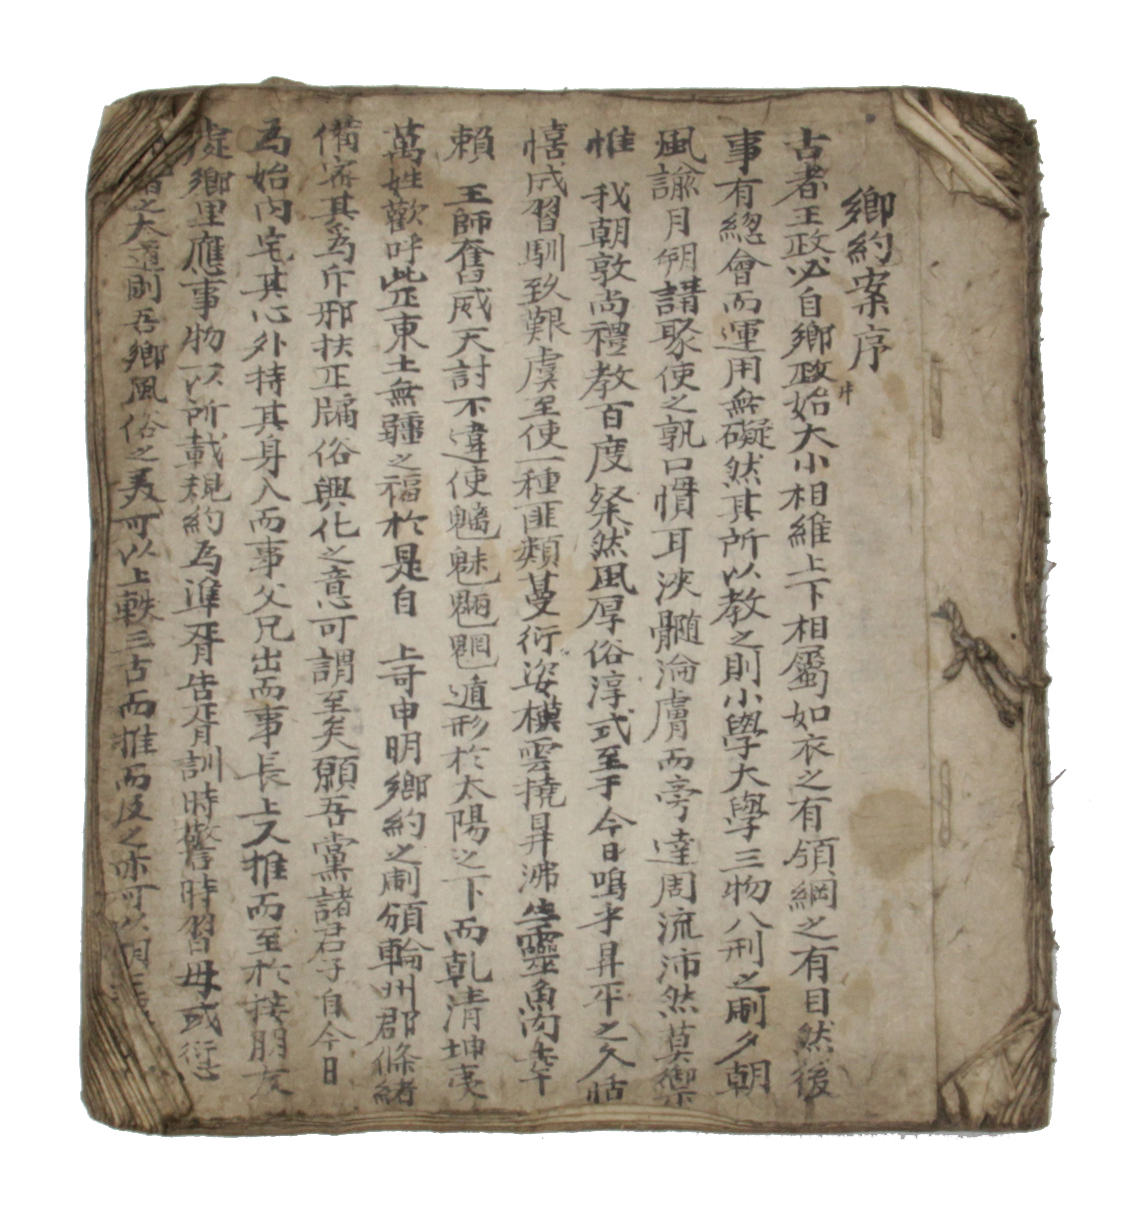 鄕約案序
古者王政必自鄕政始大小相維上下相屬如衣之有領綱之有目然後
事有緫會而運用無礙然其所以敎之則小學大學三物八刑之制夕朝
風諭月朔讀聚使之孰口慣耳浹髓淪膚而旁達周流沛然莫禦
惟 我朝敦尙禮敎百度粲然風厚俗淳式至于今日嗚乎昇平之久恬
憘成習馴致艱虞至使一種匪類蔓衍姿橫雲撓昇沸生靈魚肉
賴 王師奮威天討不違使魑魅魍魎遁形於太陽之下而乾淸坤夷
萬姓歡呼此正東土無疆之福於是自 上哥申明鄕約之制頒輪州郡條緖
備 其爲斥邪扶正牖俗興化之意可謂至矣願吾黨諸君子自今日
爲始內宅其心外持其身入而事父兄出而事長上又推而至於接朋友
處鄕里應事物以所載規約爲準胥告胥訓時警時習毋或
之大道則吾鄕風俗之美可以上軼三古而推而及之亦可以